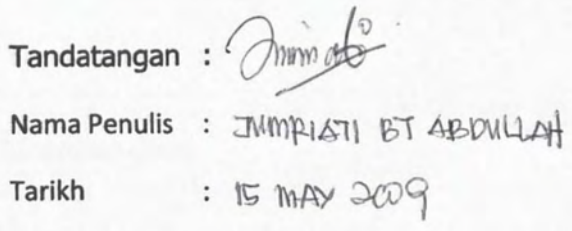 Tandatangan :
Nama Penulis : JUMRIATI BT ABDULLAH
Tarikh : 15 MAY 2009